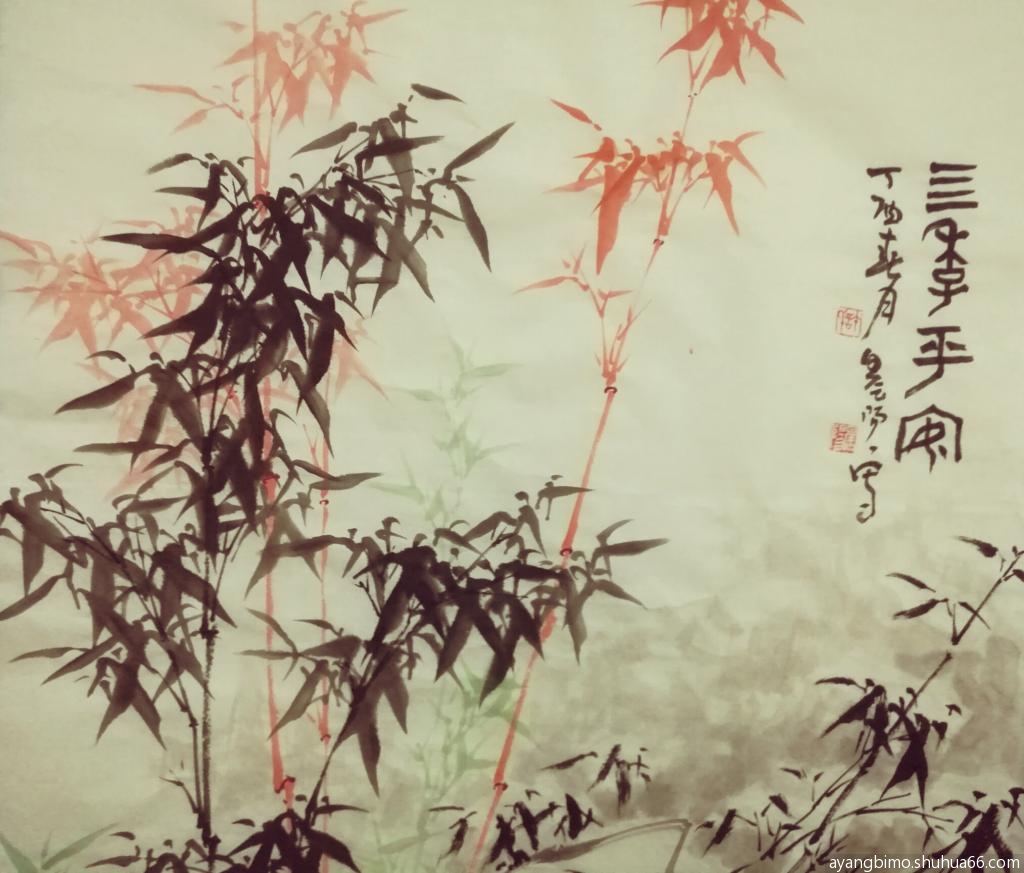 三季平安
丁酉春月
寫
ayangbimo.shuhua66.com